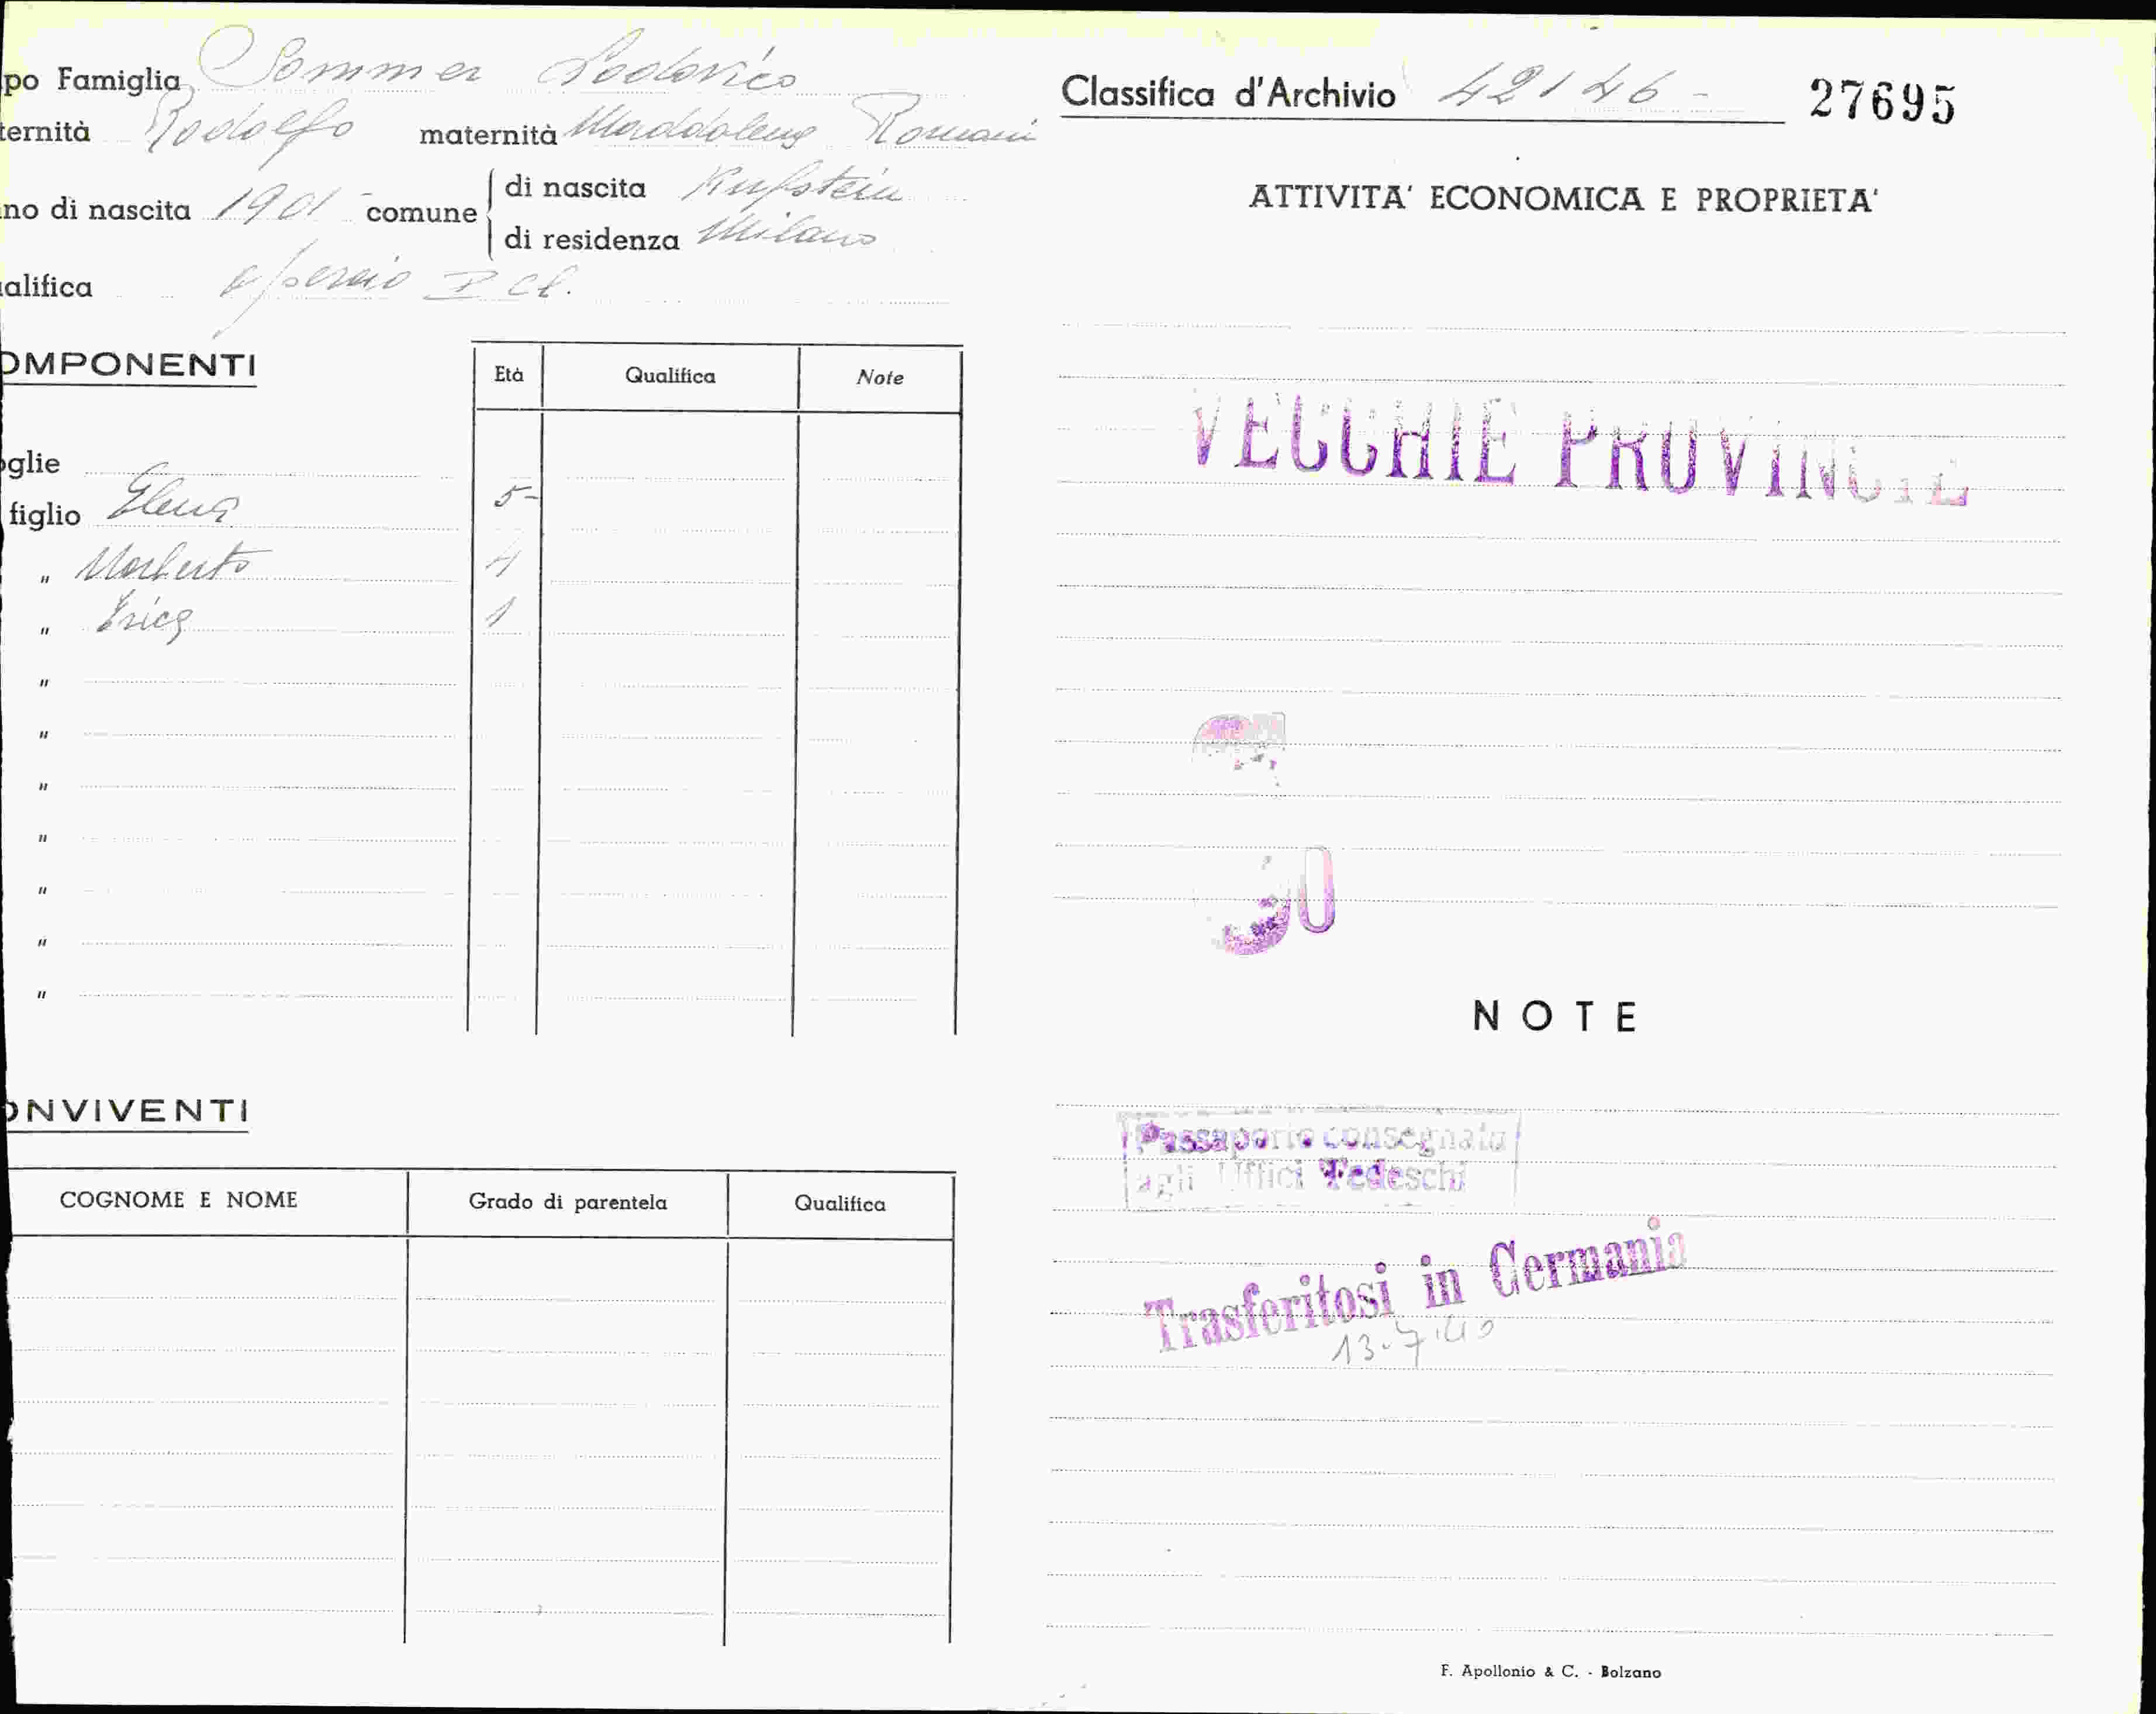 po Famiglia Sommer Lodovico
ternità Rodolfo maternità Maddalena Romani
no di nascita 1901 - comune di nascita Kufstein
di residenza Milano
alifica operaio I Cl.
OMPONENTI
Età Qualifica Note
oglie
figlio Elena 5-
" Norberto 4
" Erica 1
"
"
"
"
"
"
"
ONVIVENTI
COGNOME E NOME Grado di parentela Qualifica
Classifica d'Archivio 42146 - 27695
ATTIVITA' ECONOMICA E PROPRIETA'
VECCHIE PROVINCIE
30
NOTE
Passaporto consegnato
agli Uffici Tedeschi
Trasferitosi in Germania
13.7.40
F. Apollonio & C. - Bolzano